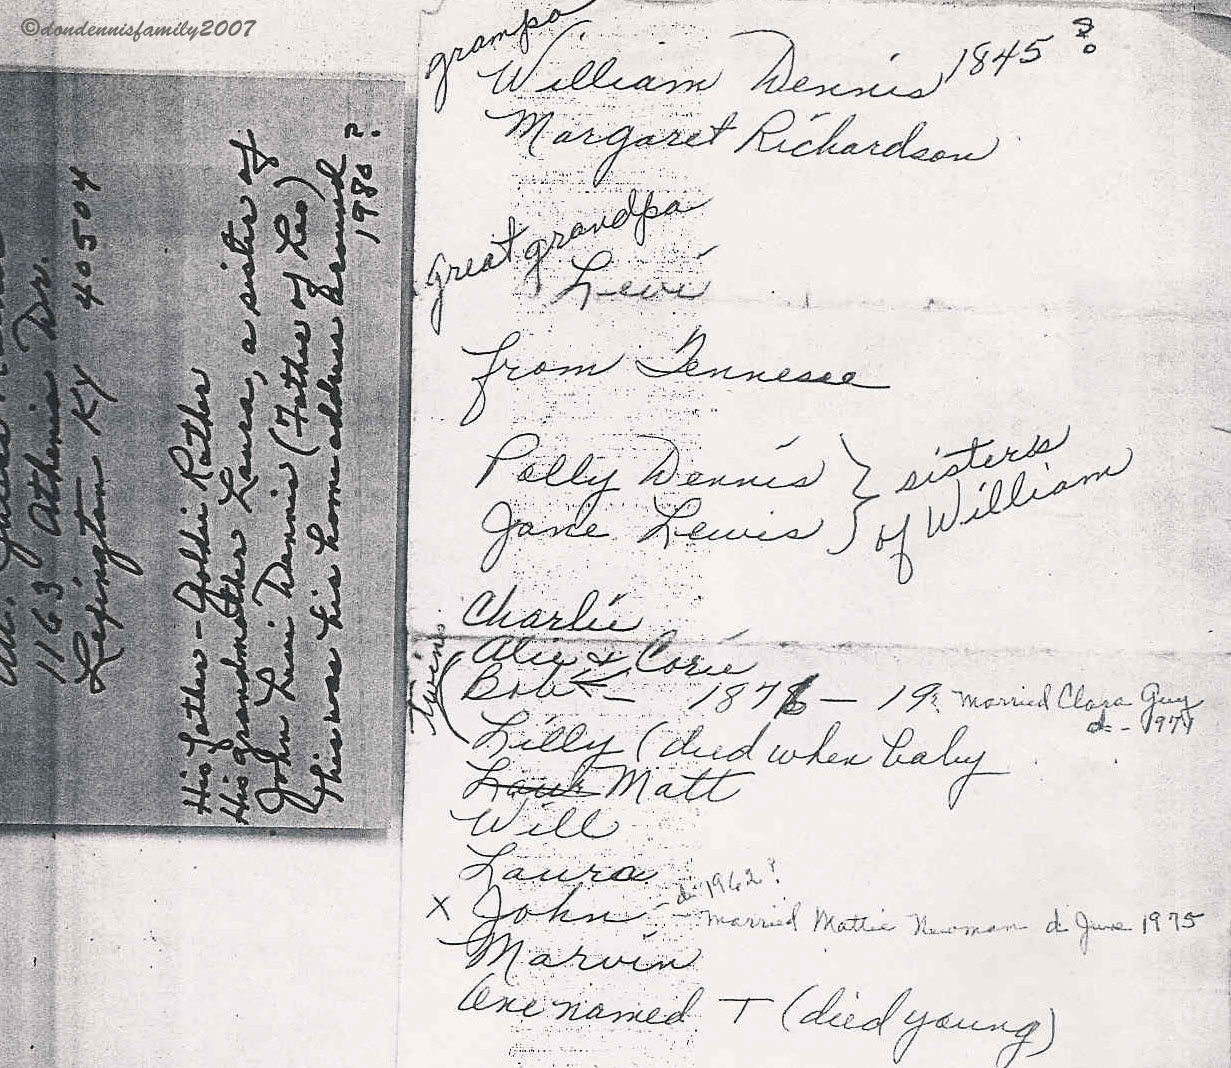 ©dondennisfamily2007
1163 Athenia Dr.
Lexington Ky 40504
His father - Goldie Rather
His grandmother Laura, a sister of
John Levi Dennis (Father of Leo)
This was his home address around
1980?
grampa
William Dennis 1845?
Margaret Richardson
great grandpa
Levi
from Tennesee
Polly Dennis } sisters
Jane Lewis } of William
Charlie
Alie & Corie
twin (Bob - 1876 - 19? married Clara Guy
d - 1971
Lilly (died when baby
Matt
Will
Laura
d. 1962?
x John - married Mattie Newman d June 1975
Marvin
One named T (died young)